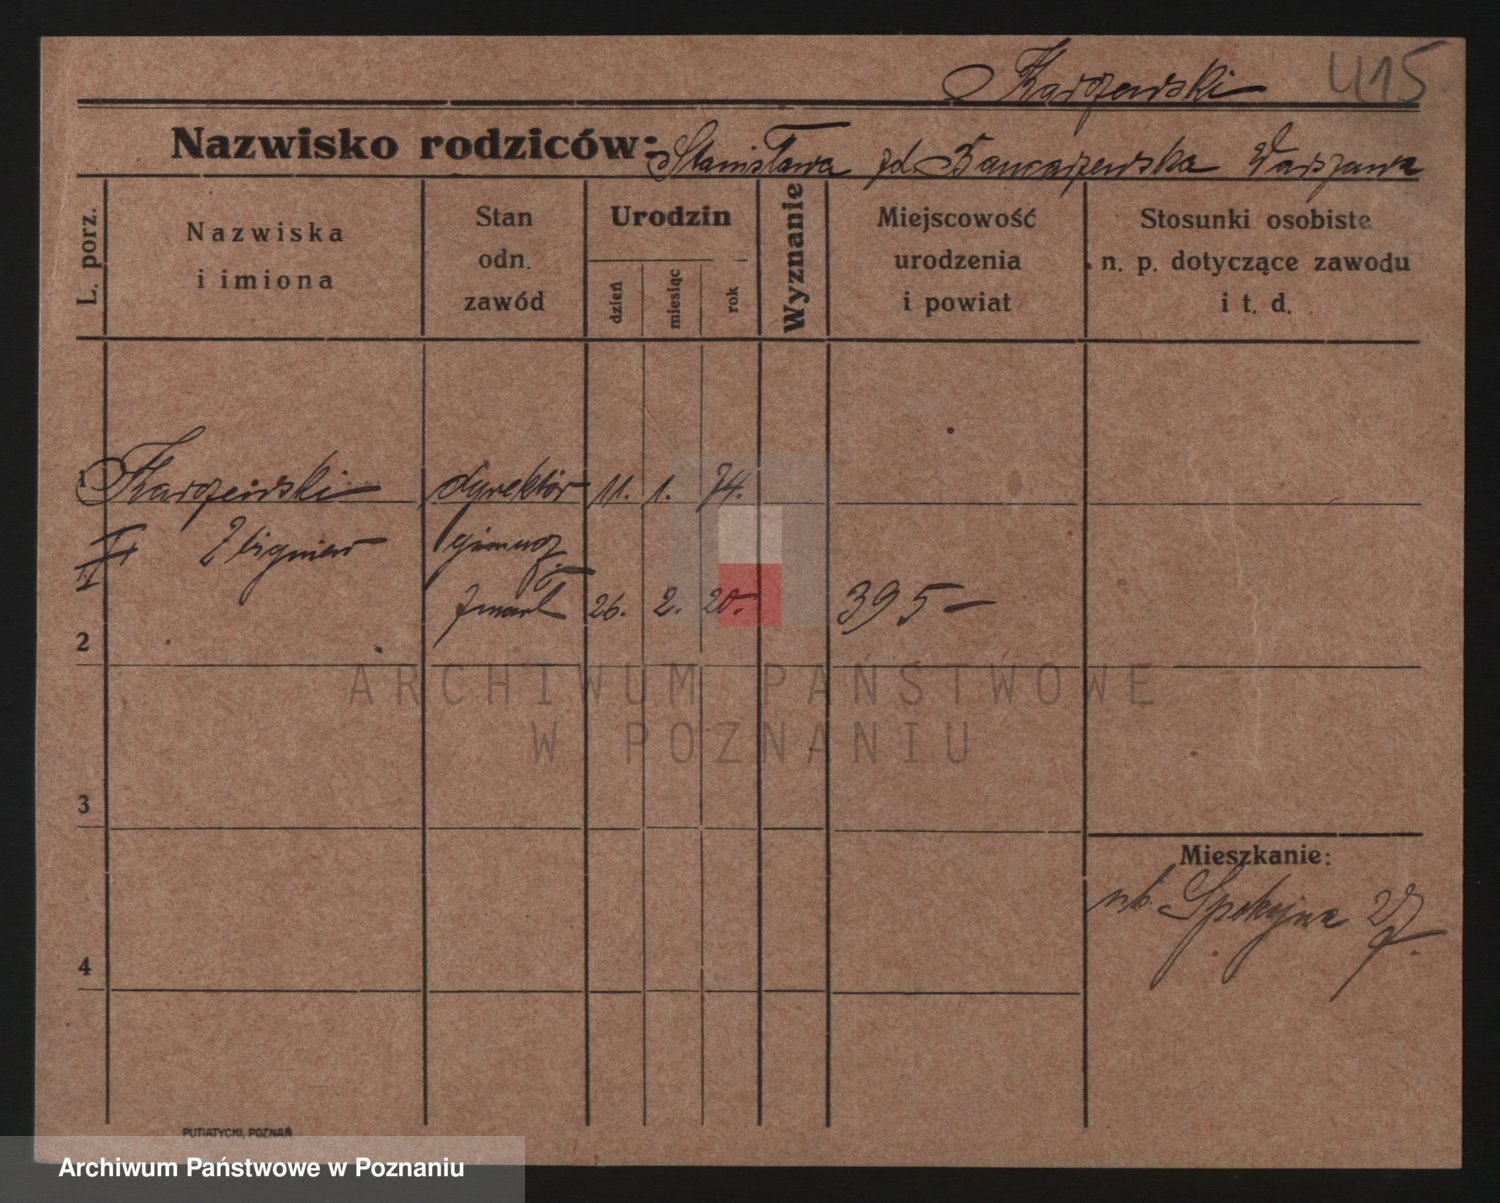 Karczewski 415
Nazwisko rodziców:
Stanisława Warszawa
L. porz.
Nazwiska
i imiona
Stan
odn.
zawód
Urodzin
dzień
miesiąc
rok
Wyznanie
Miejscowość
urodzenia
i powiat
Stosunki osobiste
n. p. dotyczące zawodu
i t. d.
1 Karczewski dyrektor 11. 1. 74.
Zbigniew gimnaz.
zmarł 26. 2. 20. 395-
2
ARCHIWUM PAŃSTWOWE
W POZNANIU
3
Mieszkanie:
Spokojna 27.
4
PUTIATYCKI, POZNAŃ
Archiwum Państwowe w Poznaniu